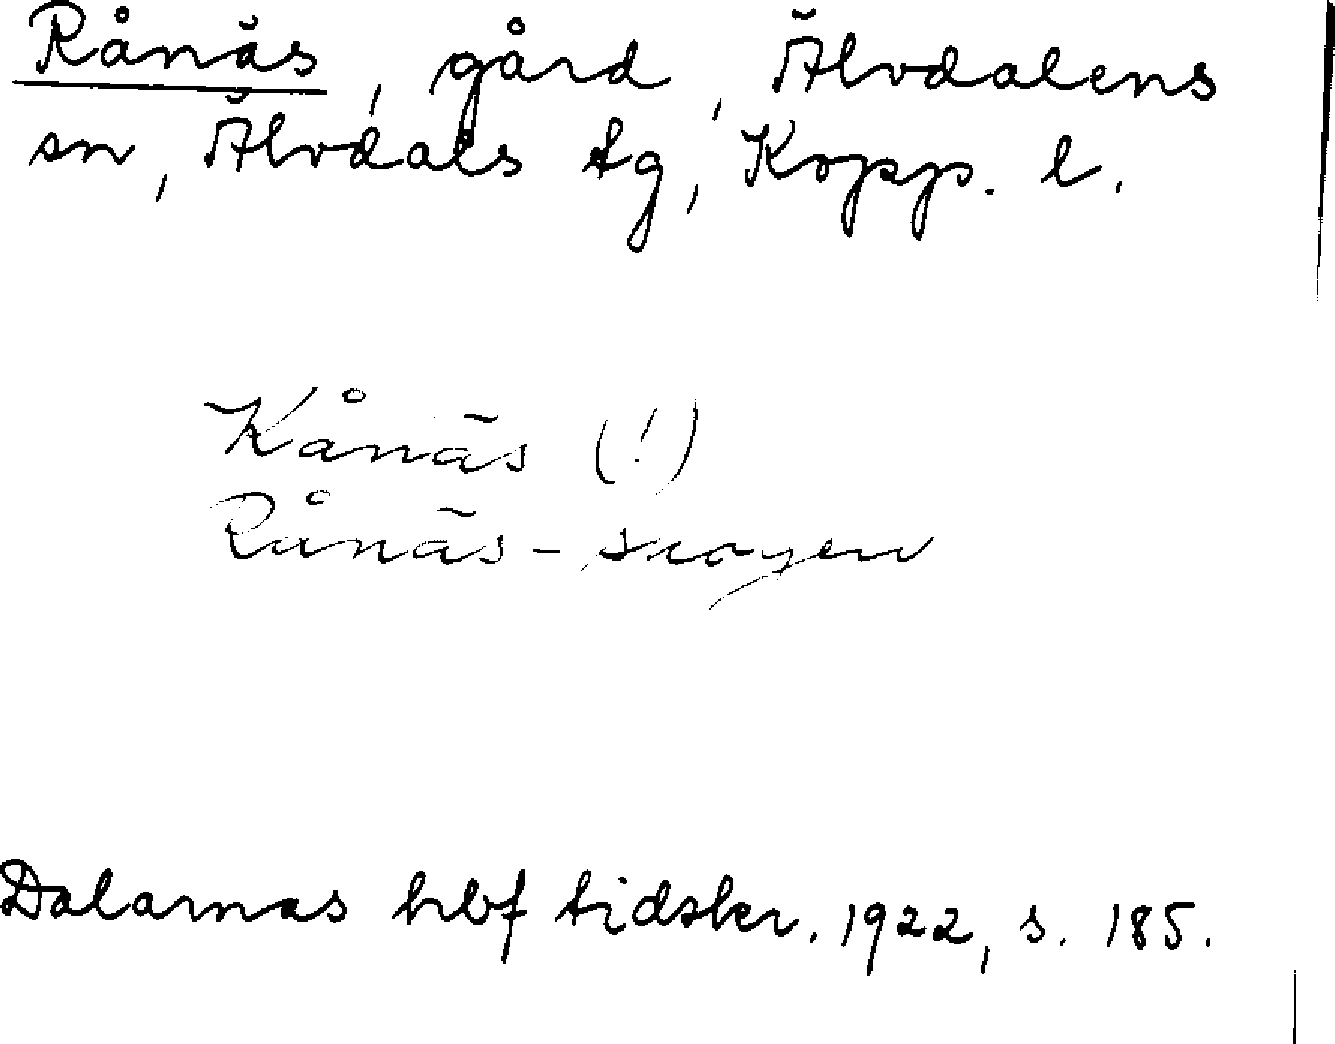 Rånäs, gård, Älvdalens
sn, Älvdals tg, Kopp. l.
Kånäs (!)
Rånäs-skogen
Dalarnas hbf tidskr. 1922, s. 185.